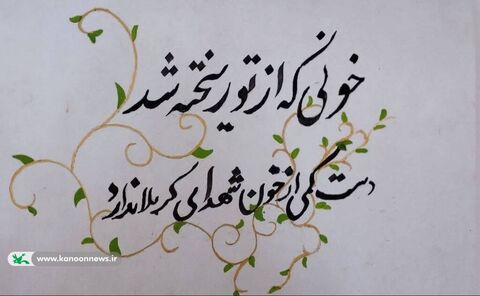 خونی که از تو ریخته شد
دست کمی از خون شهدای کربلا ندارد
www.kanoonnews.ir